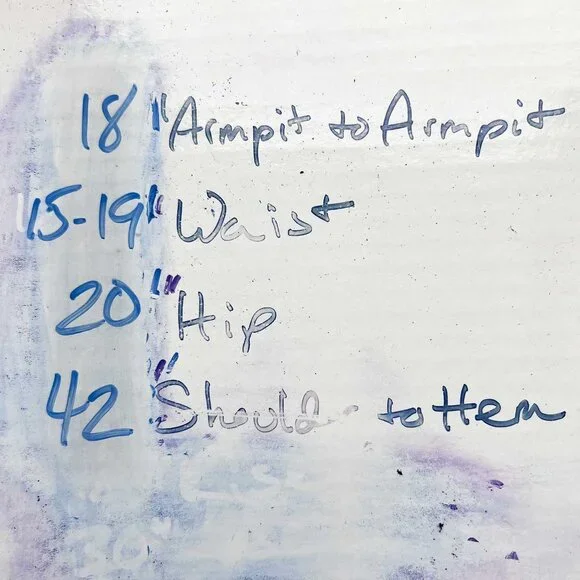 18" Armpit to Armpit
15-19" Waist
20" Hip
42" Should to Hem
30"